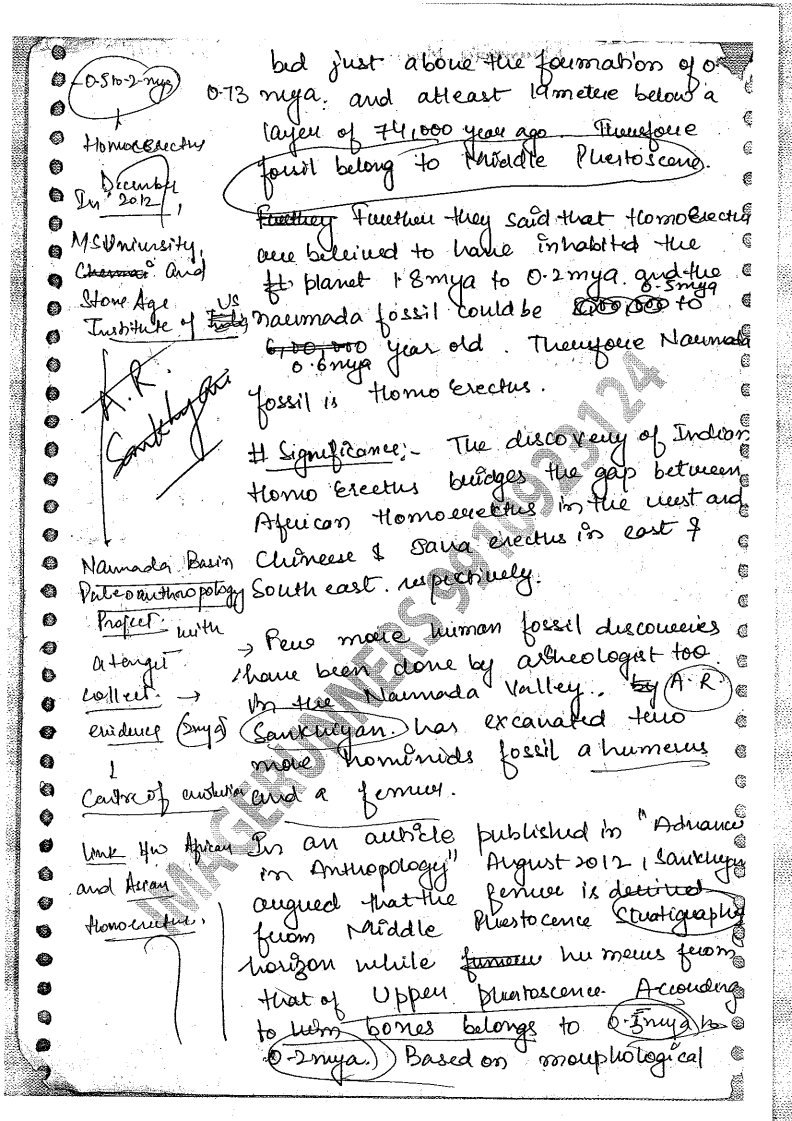 bed just above the foundation of 0.
0.73 mya. and atleast 19 metere below a
layer of 74,000 year ago. Therefore
fossil belong to Middle Pleistoscene.
Further they said that Homo Erectus
are beleived to have inhabited the
planet 1.8mya to 0.2mya. and the
Narmada fossil could be 0.5mya to
0.6mya year old. Therefore Narmada
fossil is Homo Erectus.
# Significance:- The discovery of Indian
Homo Erectus bridges the gap between
African Homoerectus in the west and
Chineese & Java erectus in east &
South east. respectively.
→ Few more human fossil discoveries
have been done by archeologist too.
In the Narmada Valley. A.R.
Sankhyan. has excavated two
more hominids fossil a humerus
and a femur.
In an article published in "Advance
in Anthropology" August 2012, Sankhyan
argued that the femur is
from Middle Pleistocence Stratigraphy
horizon while humerus from
that of Upper pleistoscence. According
to him bones belongs to 0.5mya to
0.2mya. Based on morphological
0.5 to 2 mya
Homoerectus
In December 2012,
MS University,
and
Stone Age
Institute of US
A.R.
Sankhyan
Narmada Basin
Paleoanthropology
Project. with
a target
collect →
evidence (2mya)
↓
Centre of evolution
Link b/w African
and Asian
Homoerectus.
IMAGERUNNERS 9910923124